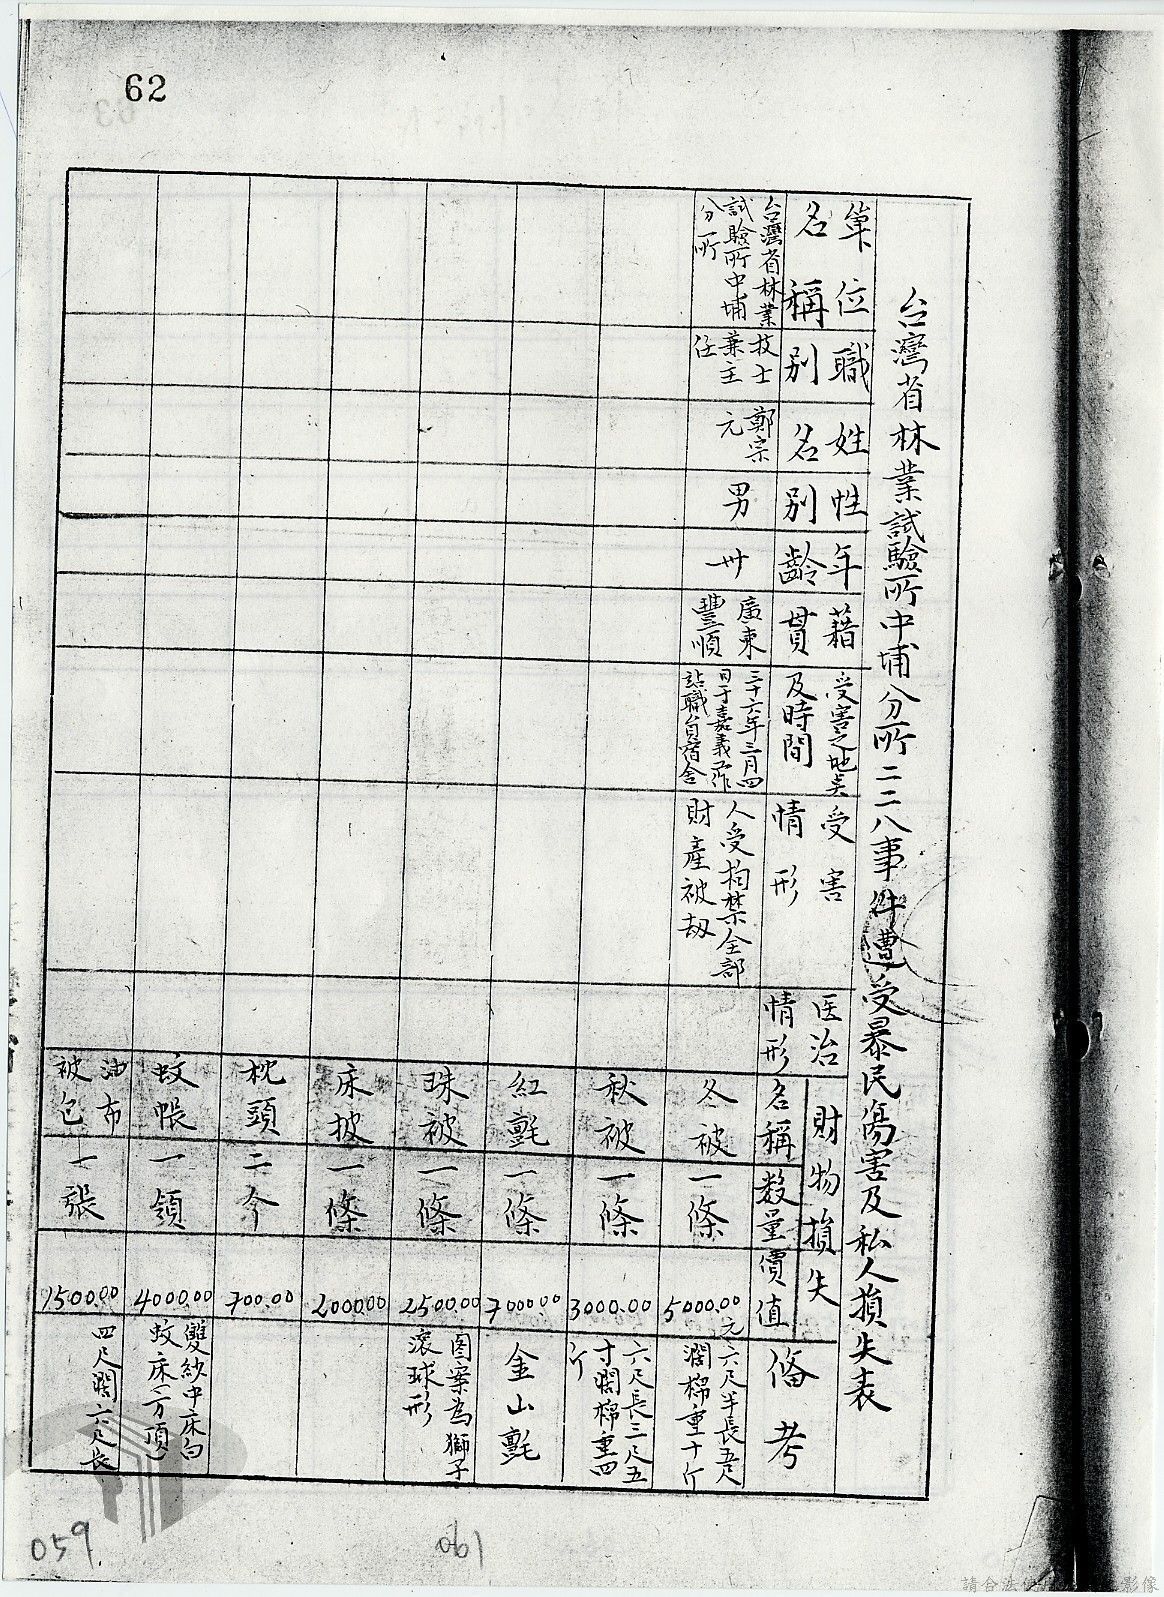 62
台灣省林業試驗所中埔分所二二八事件遭受暴民傷害及私人損失表
單位名稱
職別
姓名
性別
年齡
籍貫
受害之地点及時間
受害情形
医治情形
財物損失
名稱
数量
價值
備考
台灣省林業試驗所中埔分所
技士兼主任
鄭宗元
男
卅一
廣東豐順
三十六年三月四日于嘉義工作站職員宿舍
人受拘禁全部財產被刼
冬被
一條
5000.00元
六尺半長五尺濶棉重十斤
秋被
一條
3000.00
六尺長三尺五寸濶棉重四斤
紅氈
一條
7000.00
金山氈
珠被
一條
2500.00
图案為獅子滾球形
床披
一條
2000.00
枕頭
二个
700.00
蚊帳
一領
4000.00
雙紗中床白蚊床(方頂)
油布被包
一張
1500.00
四尺濶六尺長
059
061